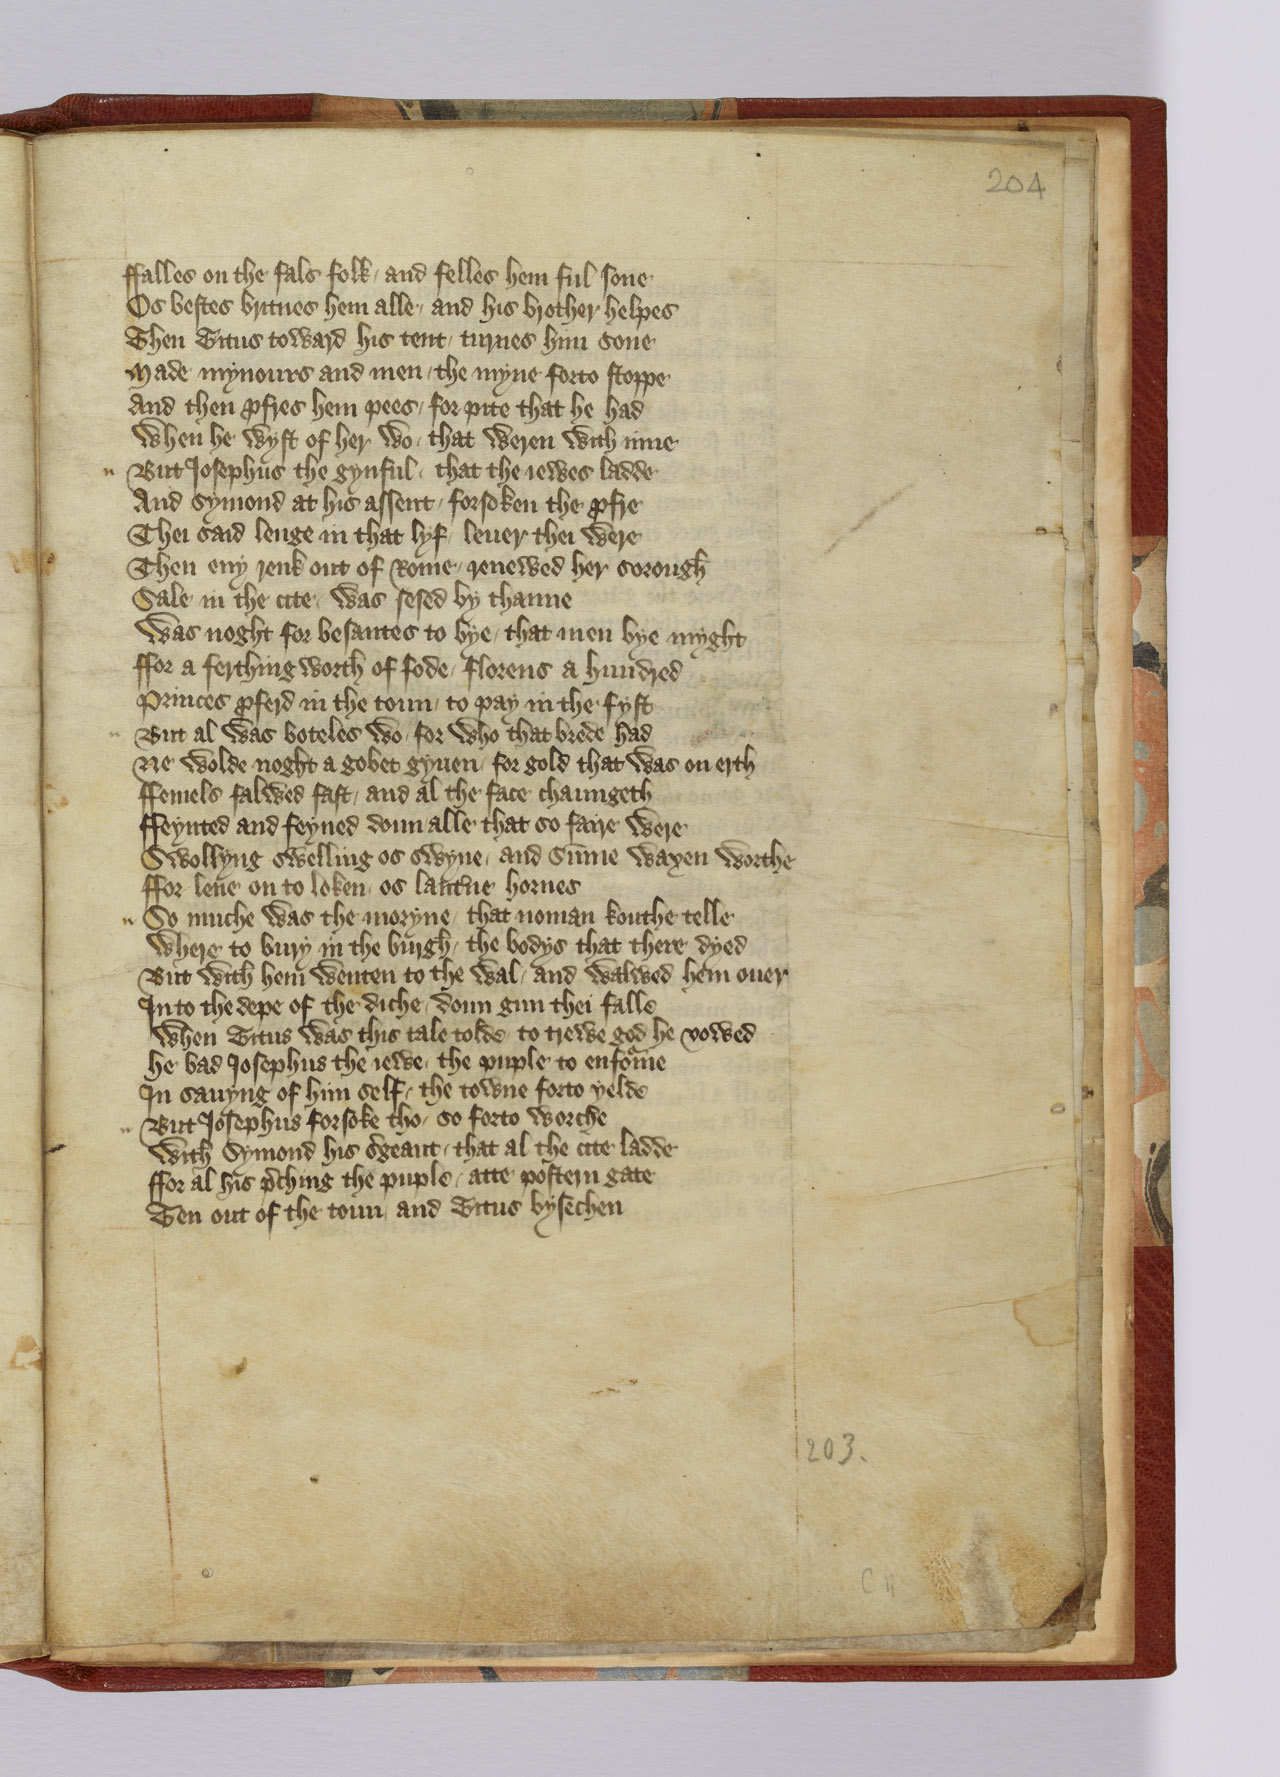 204
ffalles on the fals folk / and felles hem ful sone
Os bestes britnes hem alle / and his brother helpes
Then Titus toward his tent / turnes him sone
Made mynours and men / the myne forto stoppe
And then ꝓfres hem pees / for pite that he had
When he wyst of her wo / that weren with inne
" But Josephus the gynful / that the iewes ladde
And Symond at his assent / forsoken the ꝓfre
Thei said lenge in that lyf / leuer thei were
Then eny renk out of Rome / renewed her sorough
Sale in the cite / was sesed by thanne
Was noght for besantes to bye / that men bye myght
ffor a ferthing worth of fode / florens a hundred
Princes ꝓferd in the toun / to pay in the fyst
" But al was boteles wo / for who that brede had
Ne wolde noght a gobet gyuen / for gold that was on erth
ffemels falwed fast / and al the face chaungeth
ffeynted and feyned doun / alle that so faire were
Swollyng swelling os swyne / and sūme waxen worthe
ffor lene on to loken / os lant'ne hornes
" So muche was the moryne / that noman kouthe telle
Where to bury in the burgh / the bodys that there dyed
But with hem wenten to the wal / and walwed hem ouer
In to the depe of the diche / doun gun thei falle
When Titus was this tale tolde / to trewe god he vowed
He bad Josephus the iewe / the puple to enfoͬme
In sauyng of him self / the towne forto yelde
" But Josephus forsoke tho / so forto worche
With Symond his s'geant / that al the cite ladde
ffor al his p'ching the puple / atte postern gate
Ten out of the toun / and Titus bysechen
203.
C ii